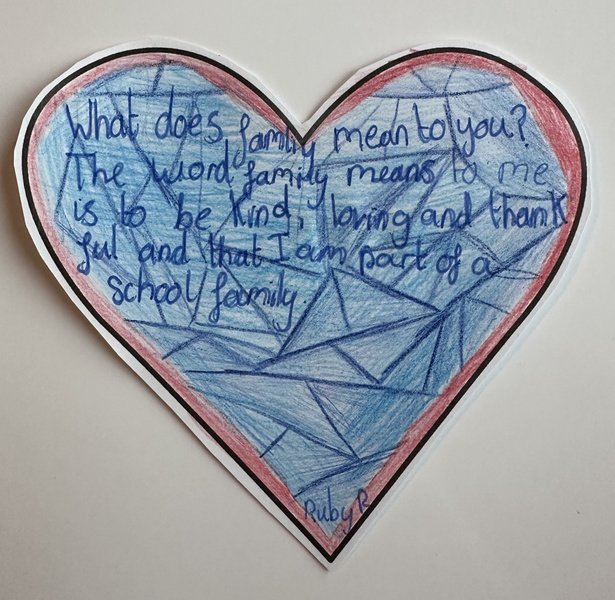 What does family mean to you?
The word family means to me
is to be kind, loving and thank
ful and that I am part of a
school family.
Ruby R